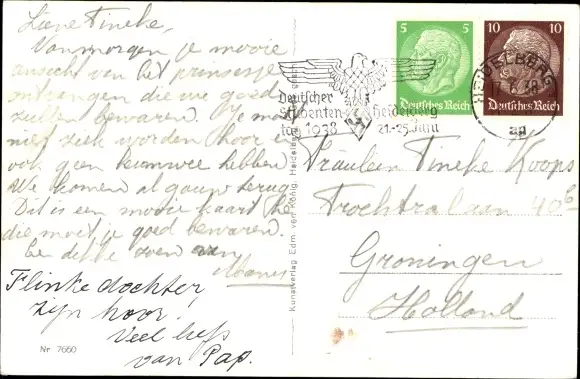 Lieve Tineke,
Vanmorgen je mooie
ansicht van het prinsesje
ontvangen die we goed
zullen bewaren. Je mag
niet ziek worden hoor en
ook geen heimwee hebben
We komen al gauw terug
Dit is een mooie kaart hè
die moet je goed bewaren.
Een dikke zoen van
Mamy
Flinke dochter
zijn hoor.
Veel liefs
van Pap.
Nr 7660
Kunstverlag Edm. von König, Heidelberg
Deutscher
Studenten-
tag 1938
Heidelberg
21.-25. Juni
5 5
Deutsches Reich
10 10
Deutsches Reich
HEIDELBERG
Fräulein Tineke Koops
40b
Groningen
Holland